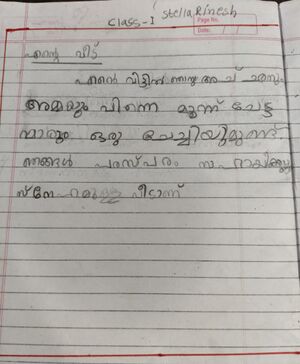 Stella Rinesh
Class-I
Page No.
Date:
എന്റെ വീട്
എന്റെ വീട്ടിൽ ഞാനും അച്ഛനും
അമ്മയും പിന്നെ മൂന്ന് ചേട്ട
ന്മാരും ഒരു ചേച്ചിയുമുണ്ട്
ഞങ്ങൾ പരസ്പരം
സ്നേഹമുള്ള വീടാണ്